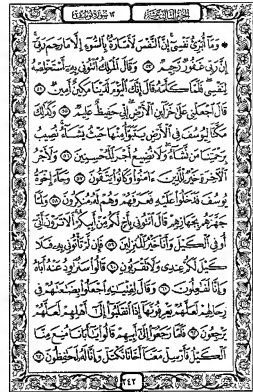 الجزء الثالث عشر ١٢ سورة يوسف
۞ وَمَآ أُبَرِّئُ نَفْسِىٓ إِنَّ ٱلنَّفْسَ لَأَمَّارَةٌۢ بِٱلسُّوٓءِ إِلَّا مَا رَحِمَ رَبِّىٓ
إِنَّ رَبِّى غَفُورٌ رَّحِيمٌ ٥٣ وَقَالَ ٱلْمَلِكُ ٱئْتُونِى بِهِۦٓ أَسْتَخْلِصْهُ
لِنَفْسِى فَلَمَّا كَلَّمَهُۥ قَالَ إِنَّكَ ٱلْيَوْمَ لَدَيْنَا مَكِينٌ أَمِينٌ ٥٤
قَالَ ٱجْعَلْنِى عَلَىٰ خَزَآئِنِ ٱلْأَرْضِ إِنِّى حَفِيظٌ عَلِيمٌ ٥٥ وَكَذَٰلِكَ
مَكَّنَّا لِيُوسُفَ فِى ٱلْأَرْضِ يَتَبَوَّأُ مِنْهَا حَيْثُ يَشَآءُ نُصِيبُ
بِرَحْمَتِنَا مَن نَّشَآءُ وَلَا نُضِيعُ أَجْرَ ٱلْمُحْسِنِينَ ٥٦ وَلَأَجْرُ
ٱلْأَخِرَةِ خَيْرٌ لِّلَّذِينَ ءَامَنُوا۟ وَكَانُوا۟ يَتَّقُونَ ٥٧ وَجَآءَ إِخْوَةُ
يُوسُفَ فَدَخَلُوا۟ عَلَيْهِ فَعَرَفَهُمْ وَهُمْ لَهُۥ مُنكِرُونَ ٥٨ وَلَمَّا
جَهَّزَهُم بِجَهَازِهِمْ قَالَ ٱئْتُونِى بِأَخٍ لَّكُم مِّنْ أَبِيكُمْ أَلَا تَرَوْنَ أَنِّىٓ
أُوفِى ٱلْكَيْلَ وَأَنَا۠ خَيْرُ ٱلْمُنزِلِينَ ٥٩ فَإِن لَّمْ تَأْتُونِى بِهِۦ فَلَا
كَيْلَ لَكُمْ عِندِى وَلَا تَقْرَبُونِ ٦٠ قَالُوا۟ سَنُرَٰوِدُ عَنْهُ أَبَاهُ
وَإِنَّا لَفَٰعِلُونَ ٦١ وَقَالَ لِفِتْيَٰنِهِ ٱجْعَلُوا۟ بِضَٰعَتَهُمْ فِى
رِحَالِهِمْ لَعَلَّهُمْ يَعْرِفُونَهَآ إِذَا ٱنقَلَبُوٓا۟ إِلَىٰٓ أَهْلِهِمْ لَعَلَّهُمْ
يَرْجِعُونَ ٦٢ فَلَمَّا رَجَعُوٓا۟ إِلَىٰٓ أَبِيهِمْ قَالُوا۟ يَٰٓأَبَانَا مُنِعَ مِنَّا
ٱلْكَيْلُ فَأَرْسِلْ مَعَنَآ أَخَانَا نَكْتَلْ وَإِنَّا لَهُۥ لَحَٰفِظُونَ ٦٣
٢٤٢